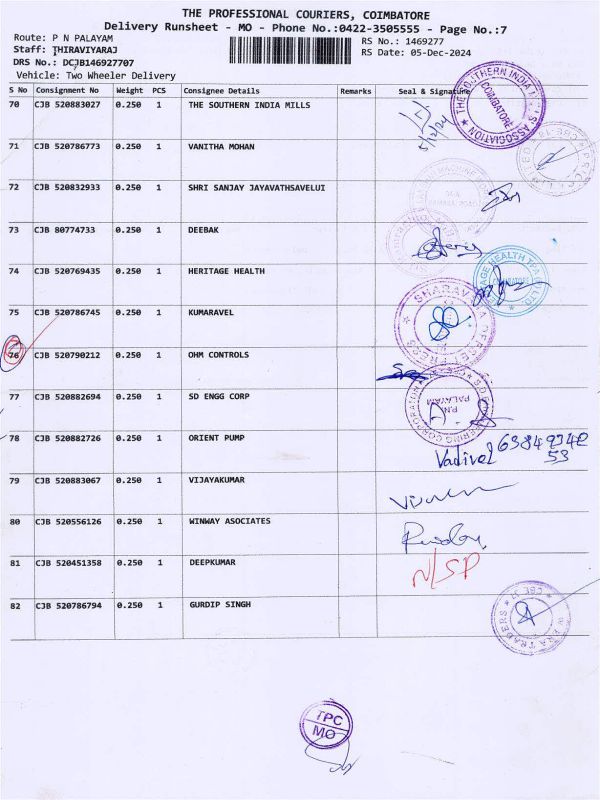 THE PROFESSIONAL COURIERS, COIMBATORE
Delivery Runsheet - MO - Phone No.:0422-3505555 - Page No.:7
Route: P N PALAYAM
Staff: THIRAVIYARAJ
DRS No.: DCJB146927707
Vehicle: Two Wheeler Delivery
RS No.: 1469277
RS Date: 05-Dec-2024
S No Consignment No Weight PCS Consignee Details Remarks Seal & Signature
70 CJB 520883027 0.250 1 THE SOUTHERN INDIA MILLS
5/12/24
71 CJB 520786773 0.250 1 VANITHA MOHAN
72 CJB 520832933 0.250 1 SHRI SANJAY JAYAVATHSAVELUI
73 CJB 80774733 0.250 1 DEEBAK
74 CJB 520769435 0.250 1 HERITAGE HEALTH
75 CJB 520786745 0.250 1 KUMARAVEL
76 CJB 520790212 0.250 1 OHM CONTROLS
77 CJB 520882694 0.250 1 SD ENGG CORP
P.N. PALAYAM
78 CJB 520882726 0.250 1 ORIENT PUMP
Vadivel
79 CJB 520883067 0.250 1 VIJAYAKUMAR
80 CJB 520556126 0.250 1 WINWAY ASOCIATES
81 CJB 520451358 0.250 1 DEEPKUMAR
N/SP
82 CJB 520786794 0.250 1 GURDIP SINGH
TPC
MO